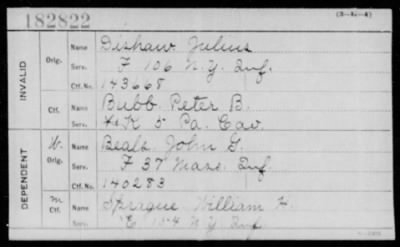 182822
(3-1-4)
INVALID
Orig.
Name Dishaw Julius
Serv. F 106 N.Y. Inf.
Ctf. No. 143668
Ctf.
Name Bubb Peter B.
Serv. K 5 Pa. Cav.
DEPENDENT
W.
Orig.
Name Beals John G.
Serv. F 37 Mass. Inf.
Ctf. No. 140283
M.
Ctf.
Name Sprague William H
Serv. E 154 N.Y. Inf